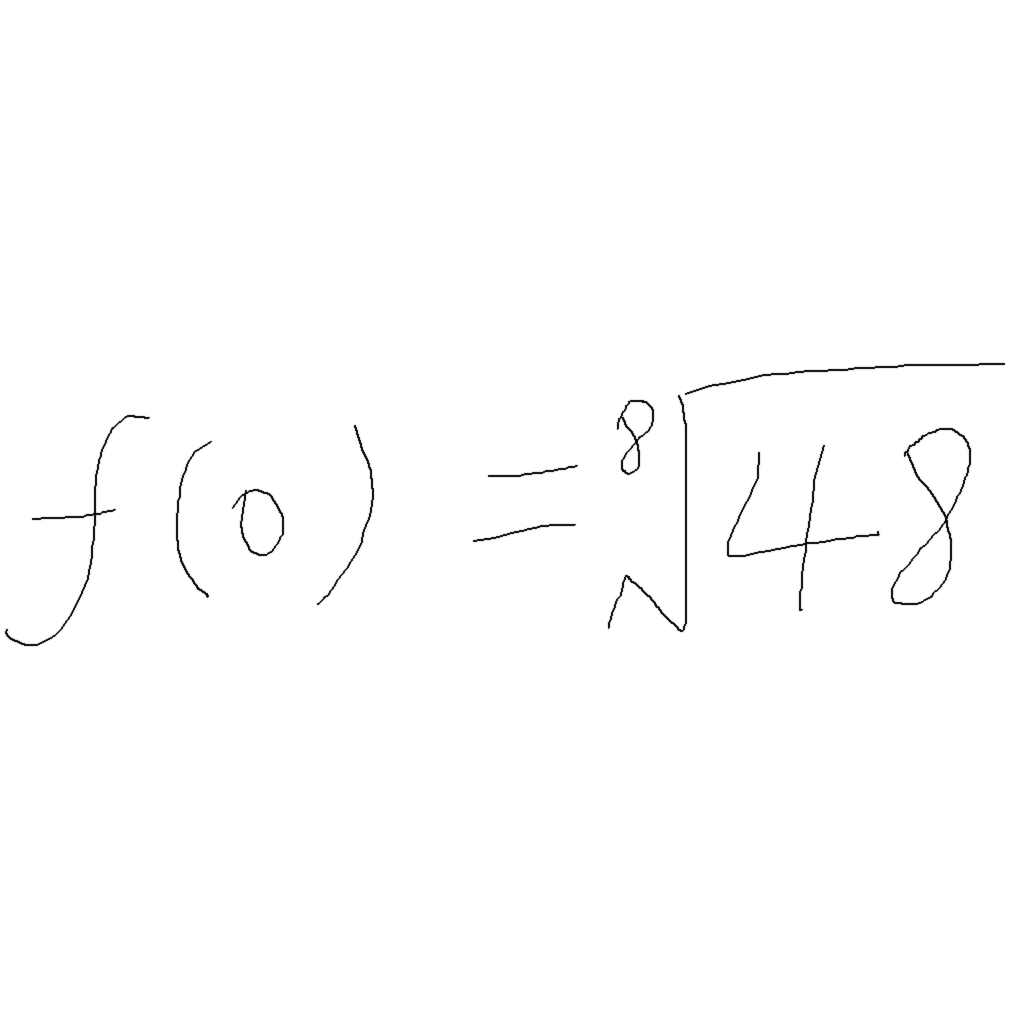 f(0) = \sqrt[8]{48}